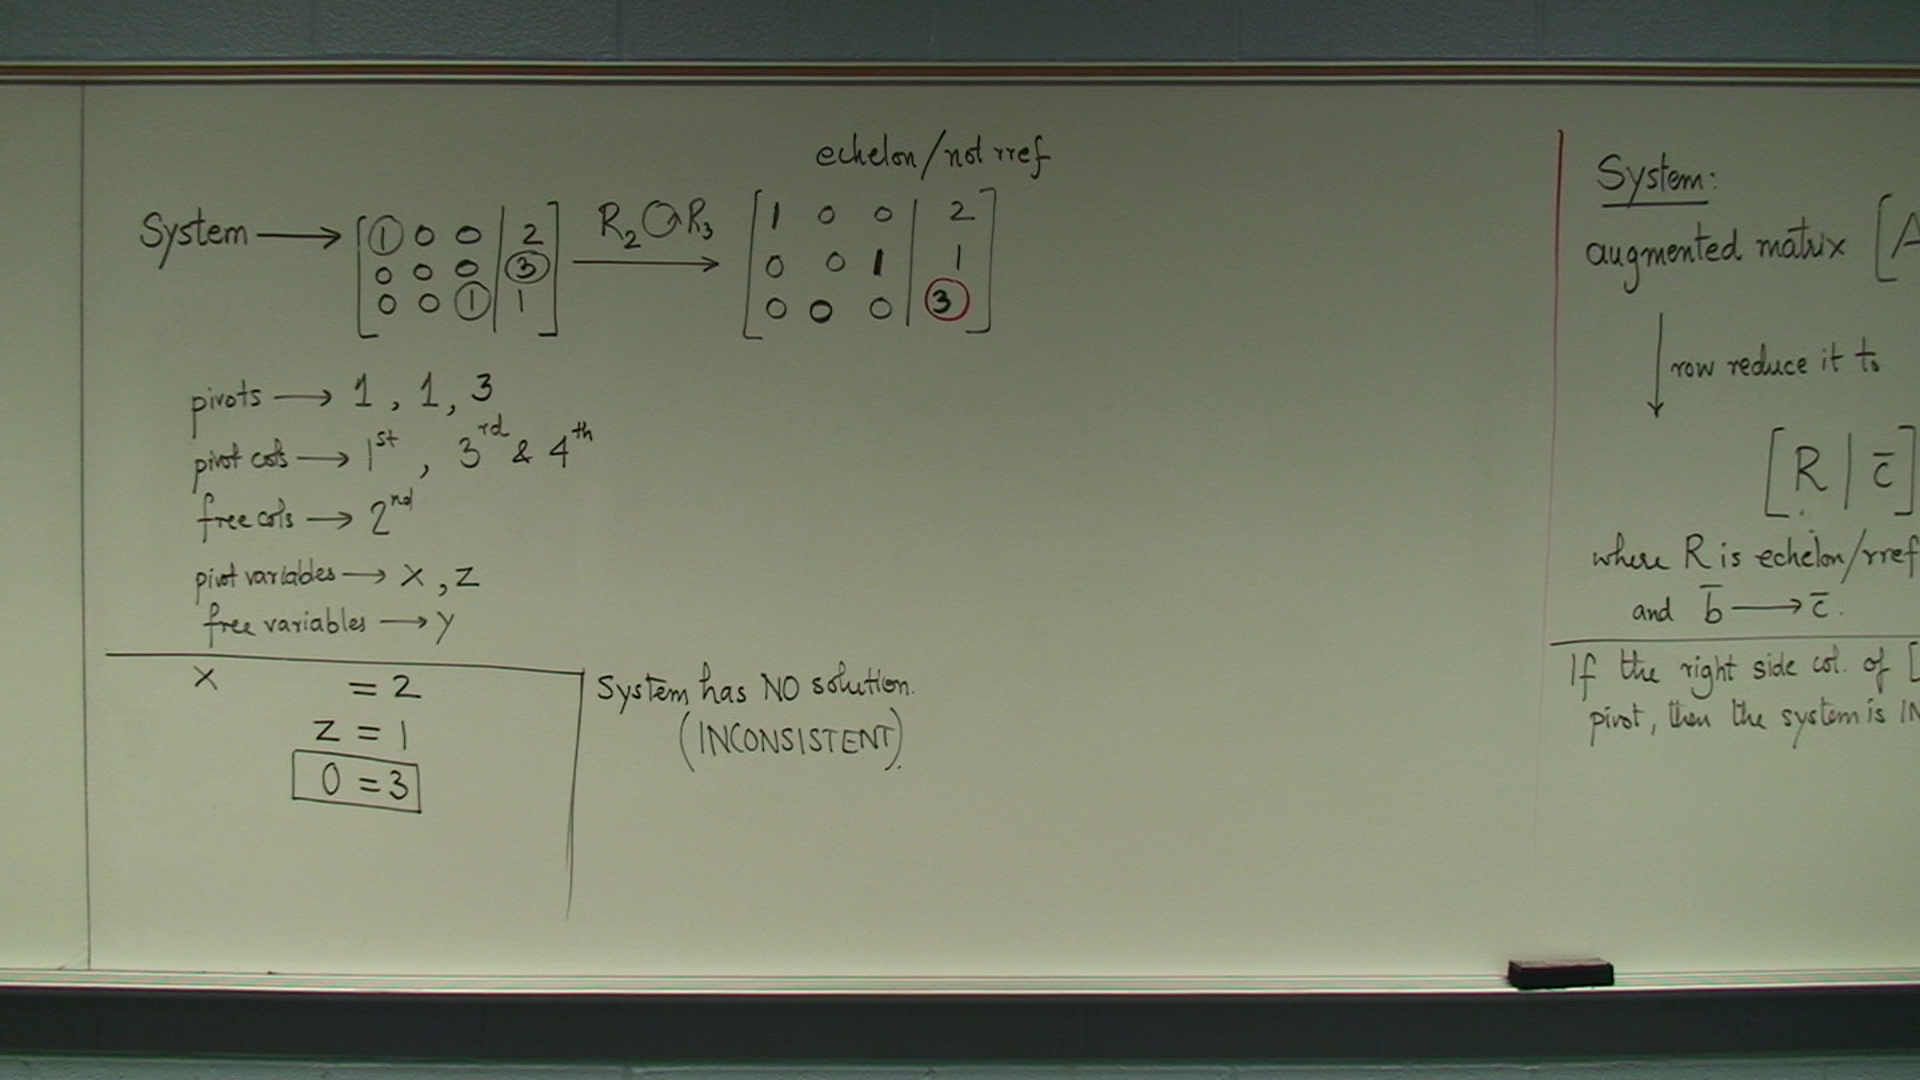 echelon/not rref
System → [1 0 0 | 2] R₂ ↻ R₃ → [1 0 0 | 2]
[0 0 0 | 3] [0 0 1 | 1]
[0 0 1 | 1] [0 0 0 | 3]
pivots → 1, 1, 3
pivot cols → 1st, 3rd & 4th
free cols → 2nd
pivot variables → x, z
free variables → y
x = 2
z = 1
0 = 3
System has NO solution.
(INCONSISTENT).
System:
augmented matrix [A
row reduce it to
[R | c̄]
where R is echelon/rref
and b̄ → c̄.
If the right side col. of [
pivot, then the system is IN